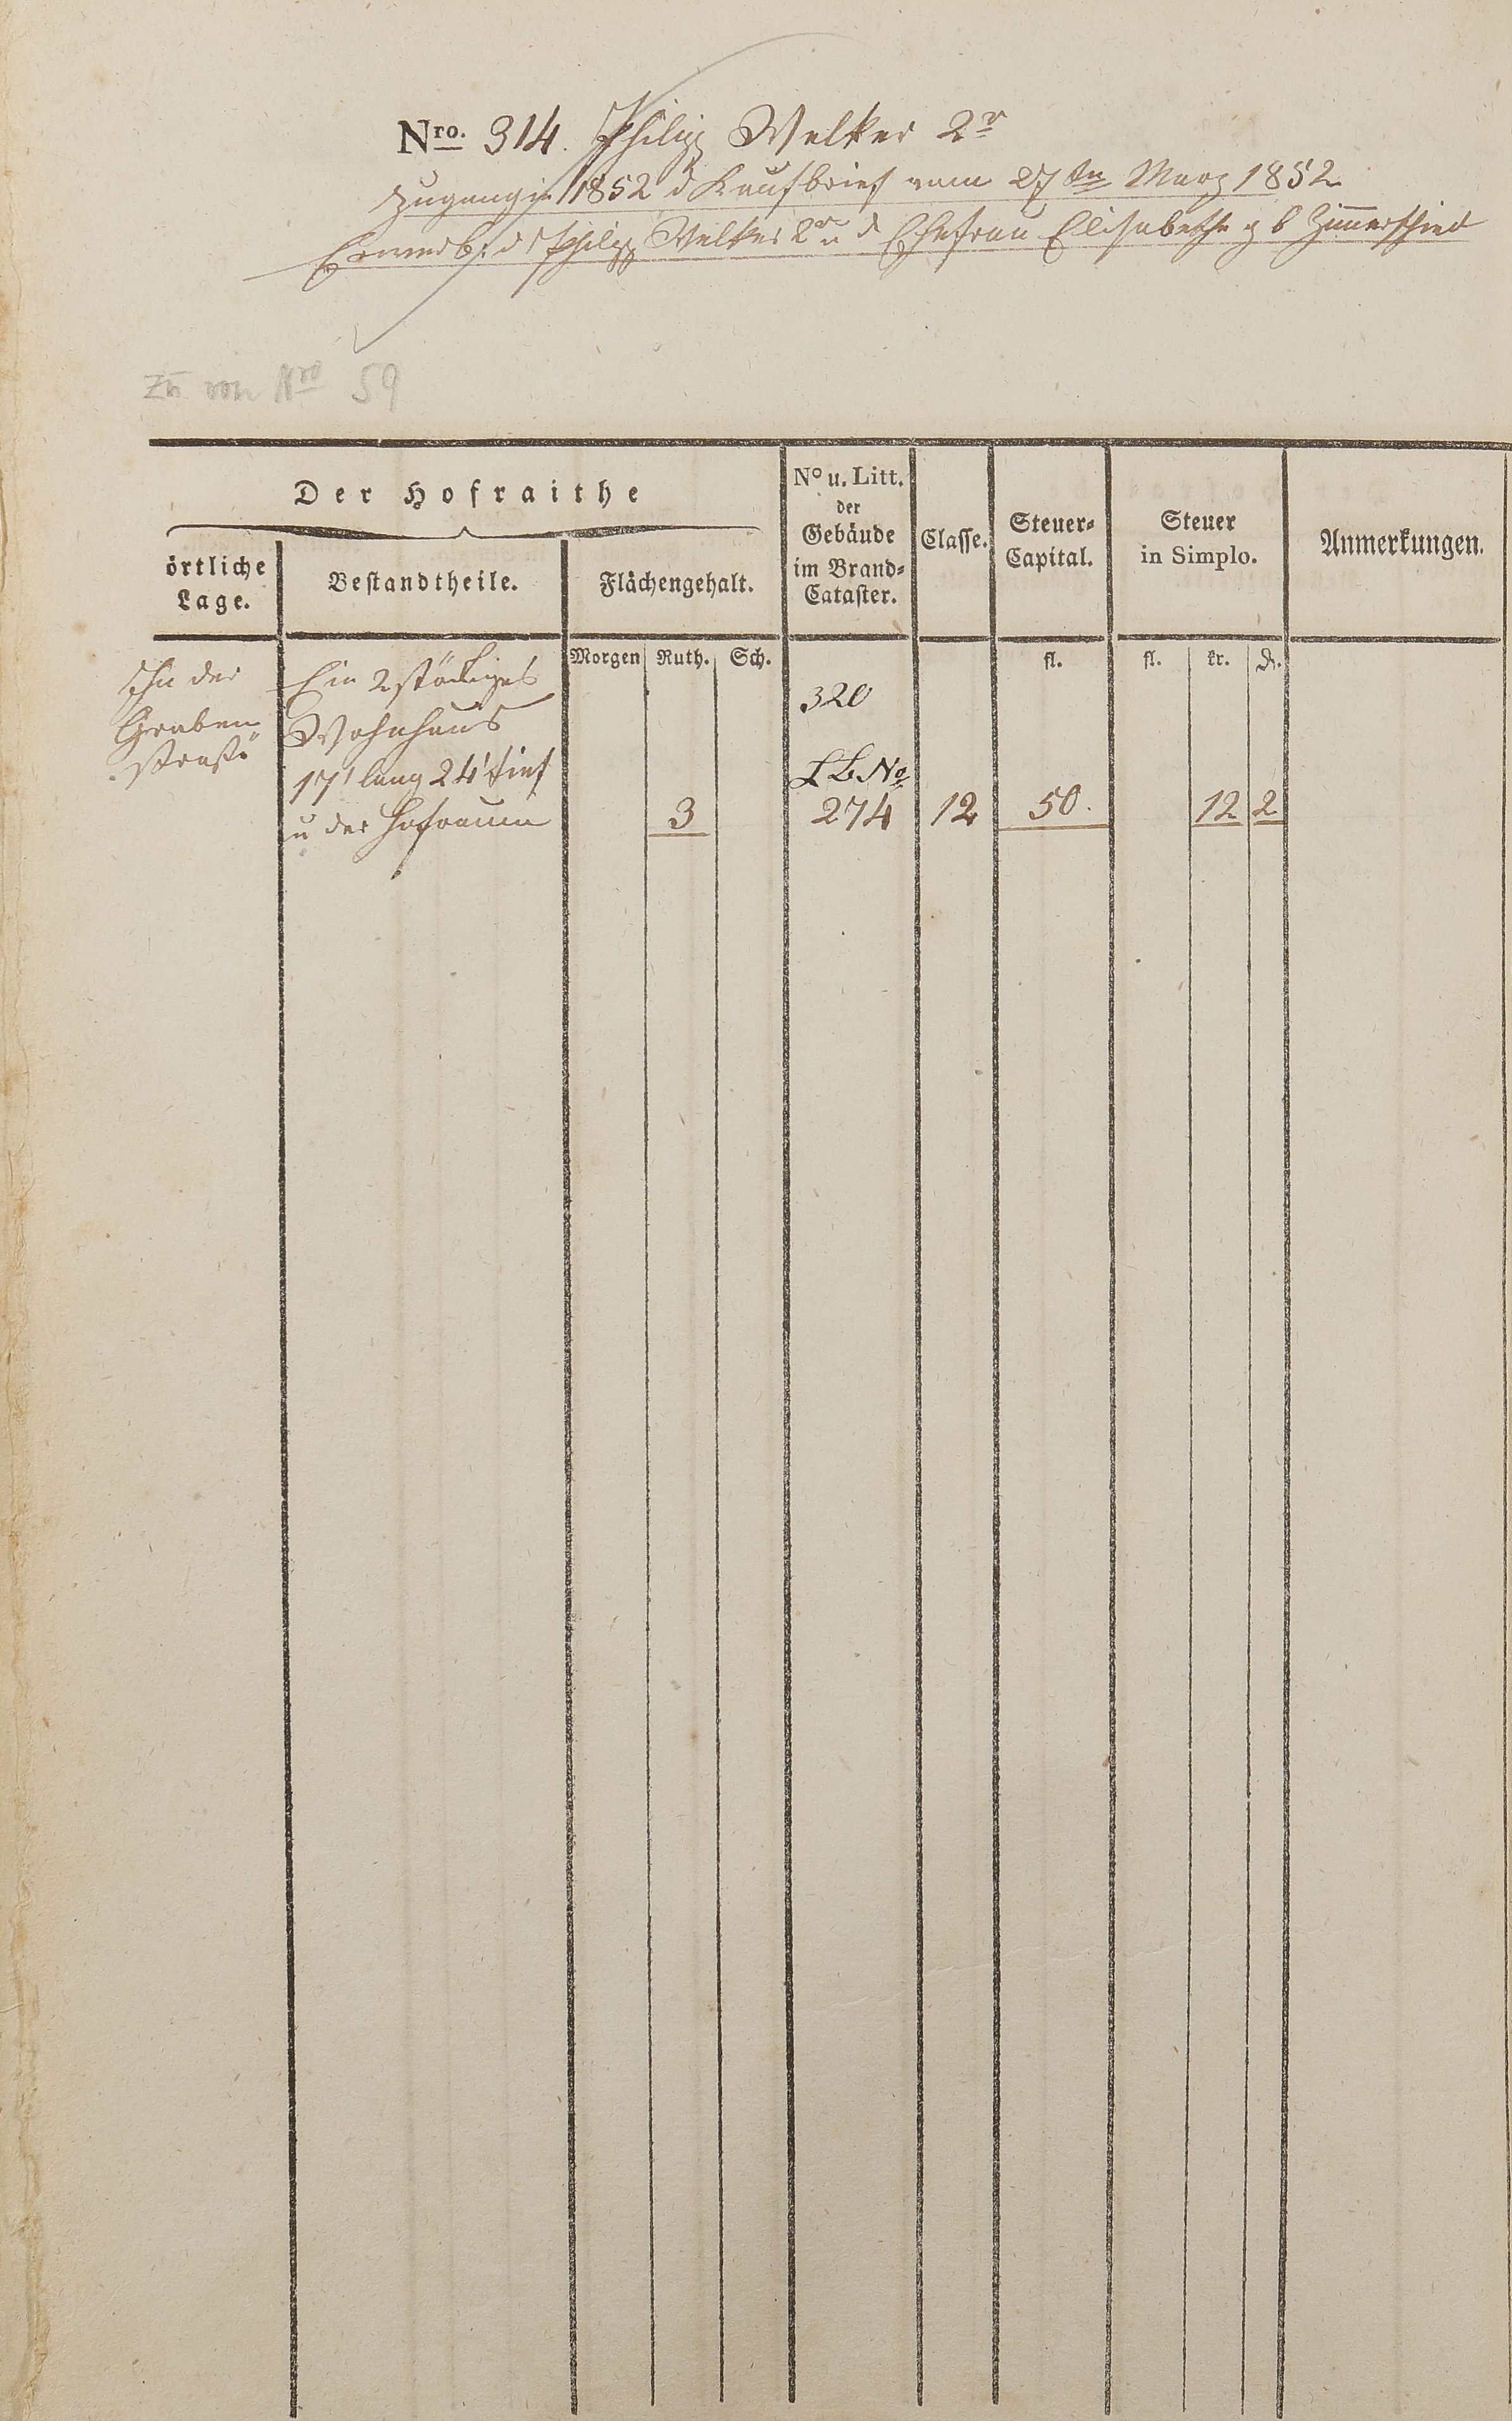 Nro. 314. Philipp Welker 2r
Zugang in 1852 d Kaufbrief vom 27ten März 1852
Erwerb: d Philipp Welker 2r u d Ehefrau Elisabethe gb Zimmerschied
Zu von Nro 59
Der Hofraithe
örtliche
Lage.
Bestandtheile.
Flächengehalt.
No u. Litt.
der
Gebäude
im Brand-
Cataster.
Classe.
Steuer-
Capital.
Steuer
in Simplo.
Anmerkungen.
Morgen Ruth. Sch. fl. fl. kr. d.
In der
Graben
straße
Ein 2 stöckiges
Wohnhaus
17' lang 24' tief
u der Hofraum
3
320
LbNo
274 12 50. 12 2